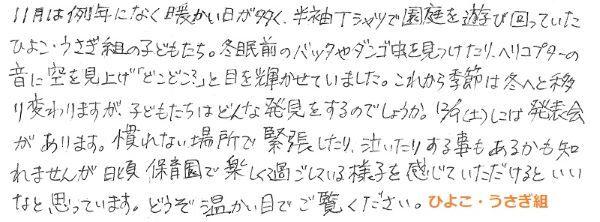 11月は例年になく暖かい日が多く、半袖Tシャツで園庭を遊び回っていた
ひよこ・うさぎ組の子どもたち。冬眠前のバッタやダンゴ虫を見つけたり、ヘリコプターの
音に空を見上げ「どこどこ?」と目を輝かせていました。これから季節は冬へと移
り変わりますが、子どもたちはどんな発見をするのでしょうか。12/9(土)には発表会
があります。慣れない場所で緊張したり、泣いたりする事もあるかも知
れませんが日頃保育園で楽しく過ごしている様子を感じていただけるといい
なと思っています。どうぞ温かい目でご覧ください。ひよこ・うさぎ組